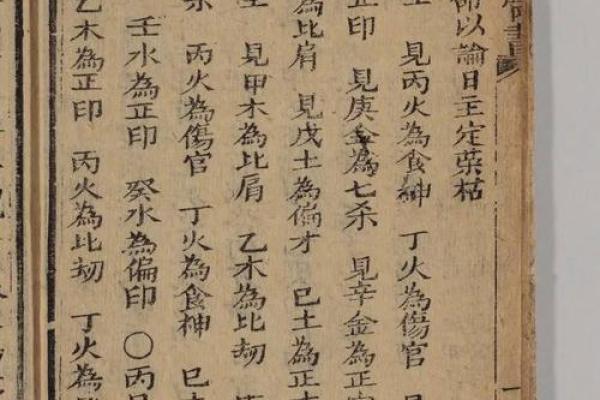 以論日主定荣枯
見丙火為食神 丁火為傷官 見
正印 見庚金為七杀 見辛金為正
為比肩 見戊土為偏才 巳土為正
見甲木為比肩 乙木為比刼
丙火為傷官 丁火為食神 巳
壬水為正印 癸水為偏印 〇丙日
乙木為正印 丙火為比刼 丁火為